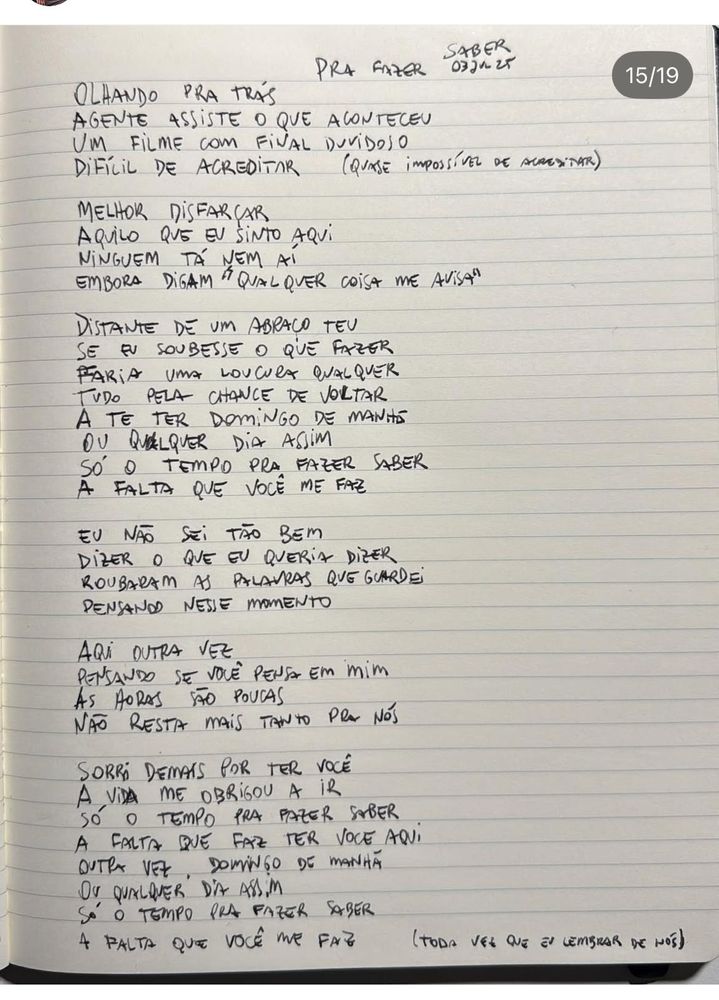 15/19
PRA FAZER SABER
03 JUL 25
OLHANDO PRA TRÁS
AGENTE ASSISTE O QUE ACONTECEU
UM FILME COM FINAL DUVIDOSO
DIFÍCIL DE ACREDITAR (QUASE IMPOSSÍVEL DE ACREDITAR)
MELHOR DISFARÇAR
AQUILO QUE EU SINTO AQUI
NINGUEM TÁ NEM AÍ
EMBORA DIGAM "QUALQUER COISA ME AVISA"
DISTANTE DE UM ABRAÇO TEU
SE EU SOUBESSE O QUE FAZER
FARIA UMA LOUCURA QUALQUER
TUDO PELA CHANCE DE VOLTAR
A TE TER DOMINGO DE MANHÃ
OU QUALQUER DIA ASSIM
SÓ O TEMPO PRA FAZER SABER
A FALTA QUE VOCÊ ME FAZ
EU NÃO SEI TÃO BEM
DIZER O QUE EU QUERIA DIZER
ROUBARAM AS PALAVRAS QUE GUARDEI
PENSANDO NESSE MOMENTO
AQUI OUTRA VEZ
PENSANDO SE VOCÊ PENSA EM MIM
AS HORAS SÃO POUCAS
NÃO RESTA MAIS TANTO PRA NÓS
SORRI DEMAIS POR TER VOCÊ
A VIDA ME OBRIGOU A IR
SÓ O TEMPO PRA FAZER SABER
A FALTA QUE FAZ TER VOCE AQUI
OUTRA VEZ, DOMINGO DE MANHÃ
OU QUALQUER DIA ASSIM
SÓ O TEMPO PRA FAZER SABER
A FALTA QUE VOCÊ ME FAZ (TODA VEZ QUE EU LEMBRAR DE NÓS)